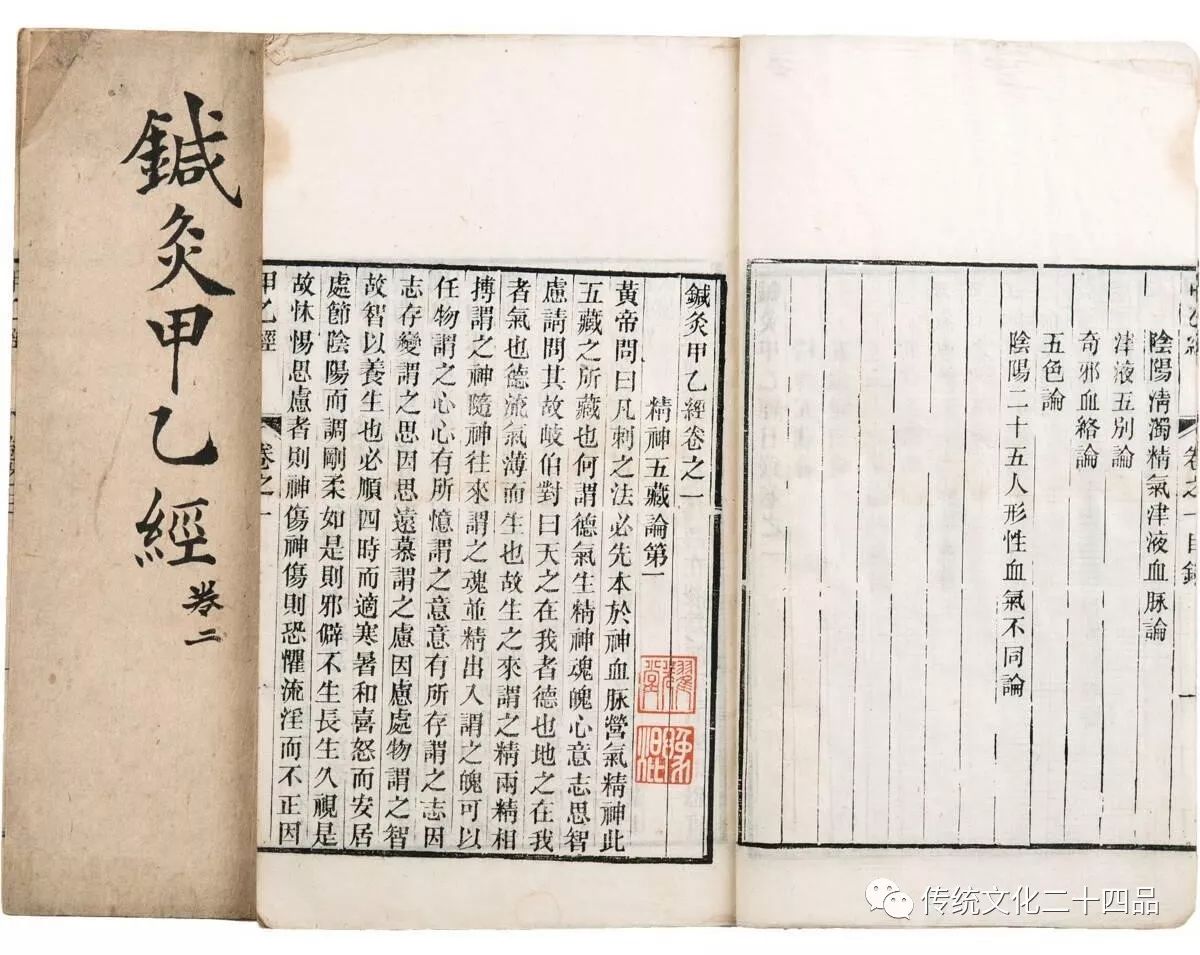 陰陽淸濁精氣津液血脉論
津液五別論
奇邪血絡論
五色論
陰陽二十五人形性血氣不同論
卷之一目錄
一
鍼灸甲乙經卷之一
精神五藏論第一
黃帝問曰凡刺之法必先本於神血脉營氣精神此
五藏之所藏也何謂德氣生精神魂魄心意志思智
慮請問其故岐伯對曰天之在我者德也地之在我
者氣也德流氣薄而生也故生之來謂之精兩精相
搏謂之神隨神往來謂之魂並精出入謂之魄可以
任物謂之心心有所憶謂之意意有所存謂之志因
志存變謂之思因思遠慕謂之慮因慮處物謂之智
故智以養生也必順四時而適寒暑和喜怒而安居
處節陰陽而調剛柔如是則邪僻不生長生久視是
故怵惕思慮者則神傷神傷則恐懼流淫而不正因
甲乙經
卷之一
鍼灸甲乙經
卷二
传统文化二十四品